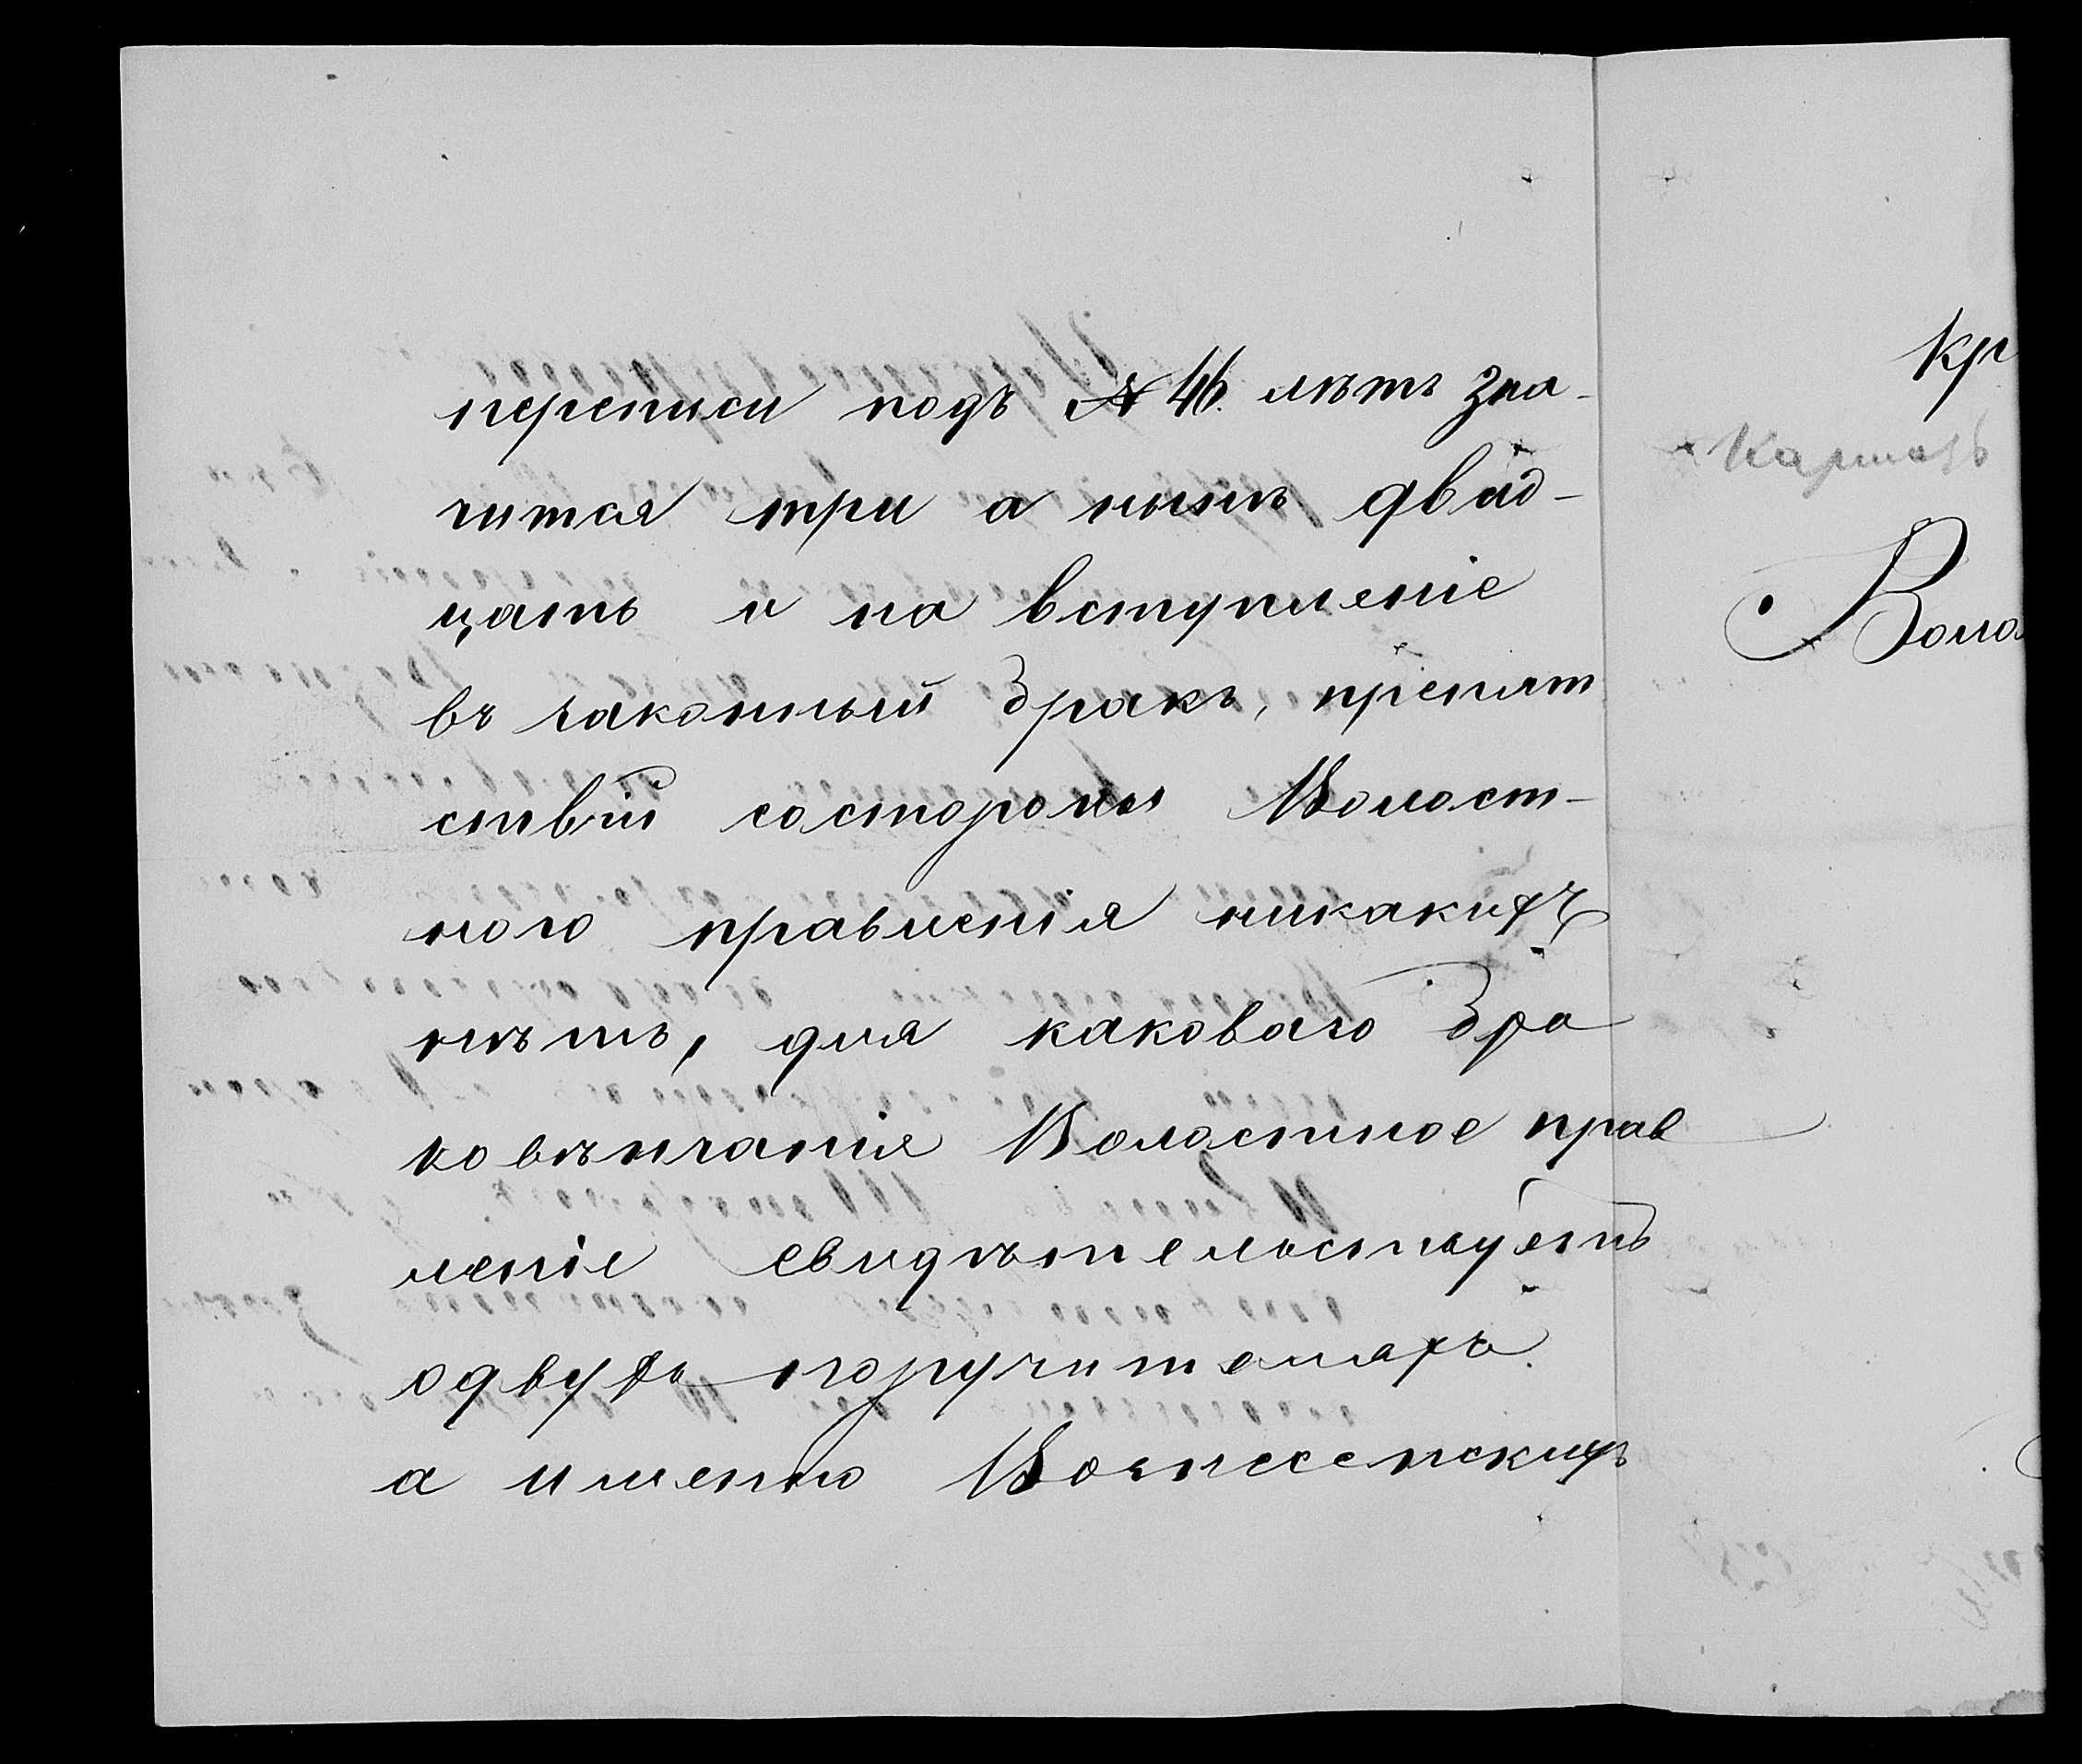 переписи подъ № 46. лѣтъ зна-
чится три а нынѣ двад-
цать и на вступленіе
въ законный бракъ, препят
ствій состороны Волост-
ного правленія никакихъ
нѣтъ, для каковаго бра
ковѣнчанія Волостное прав
леніе свидѣтельствуетъ
одвухъ поручителяхъ
а именно Вознесенскихъ
Кр
Воло